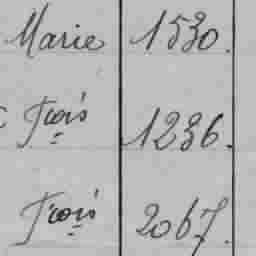 Marie 1530.
Frois 1236.
Frois 2067.